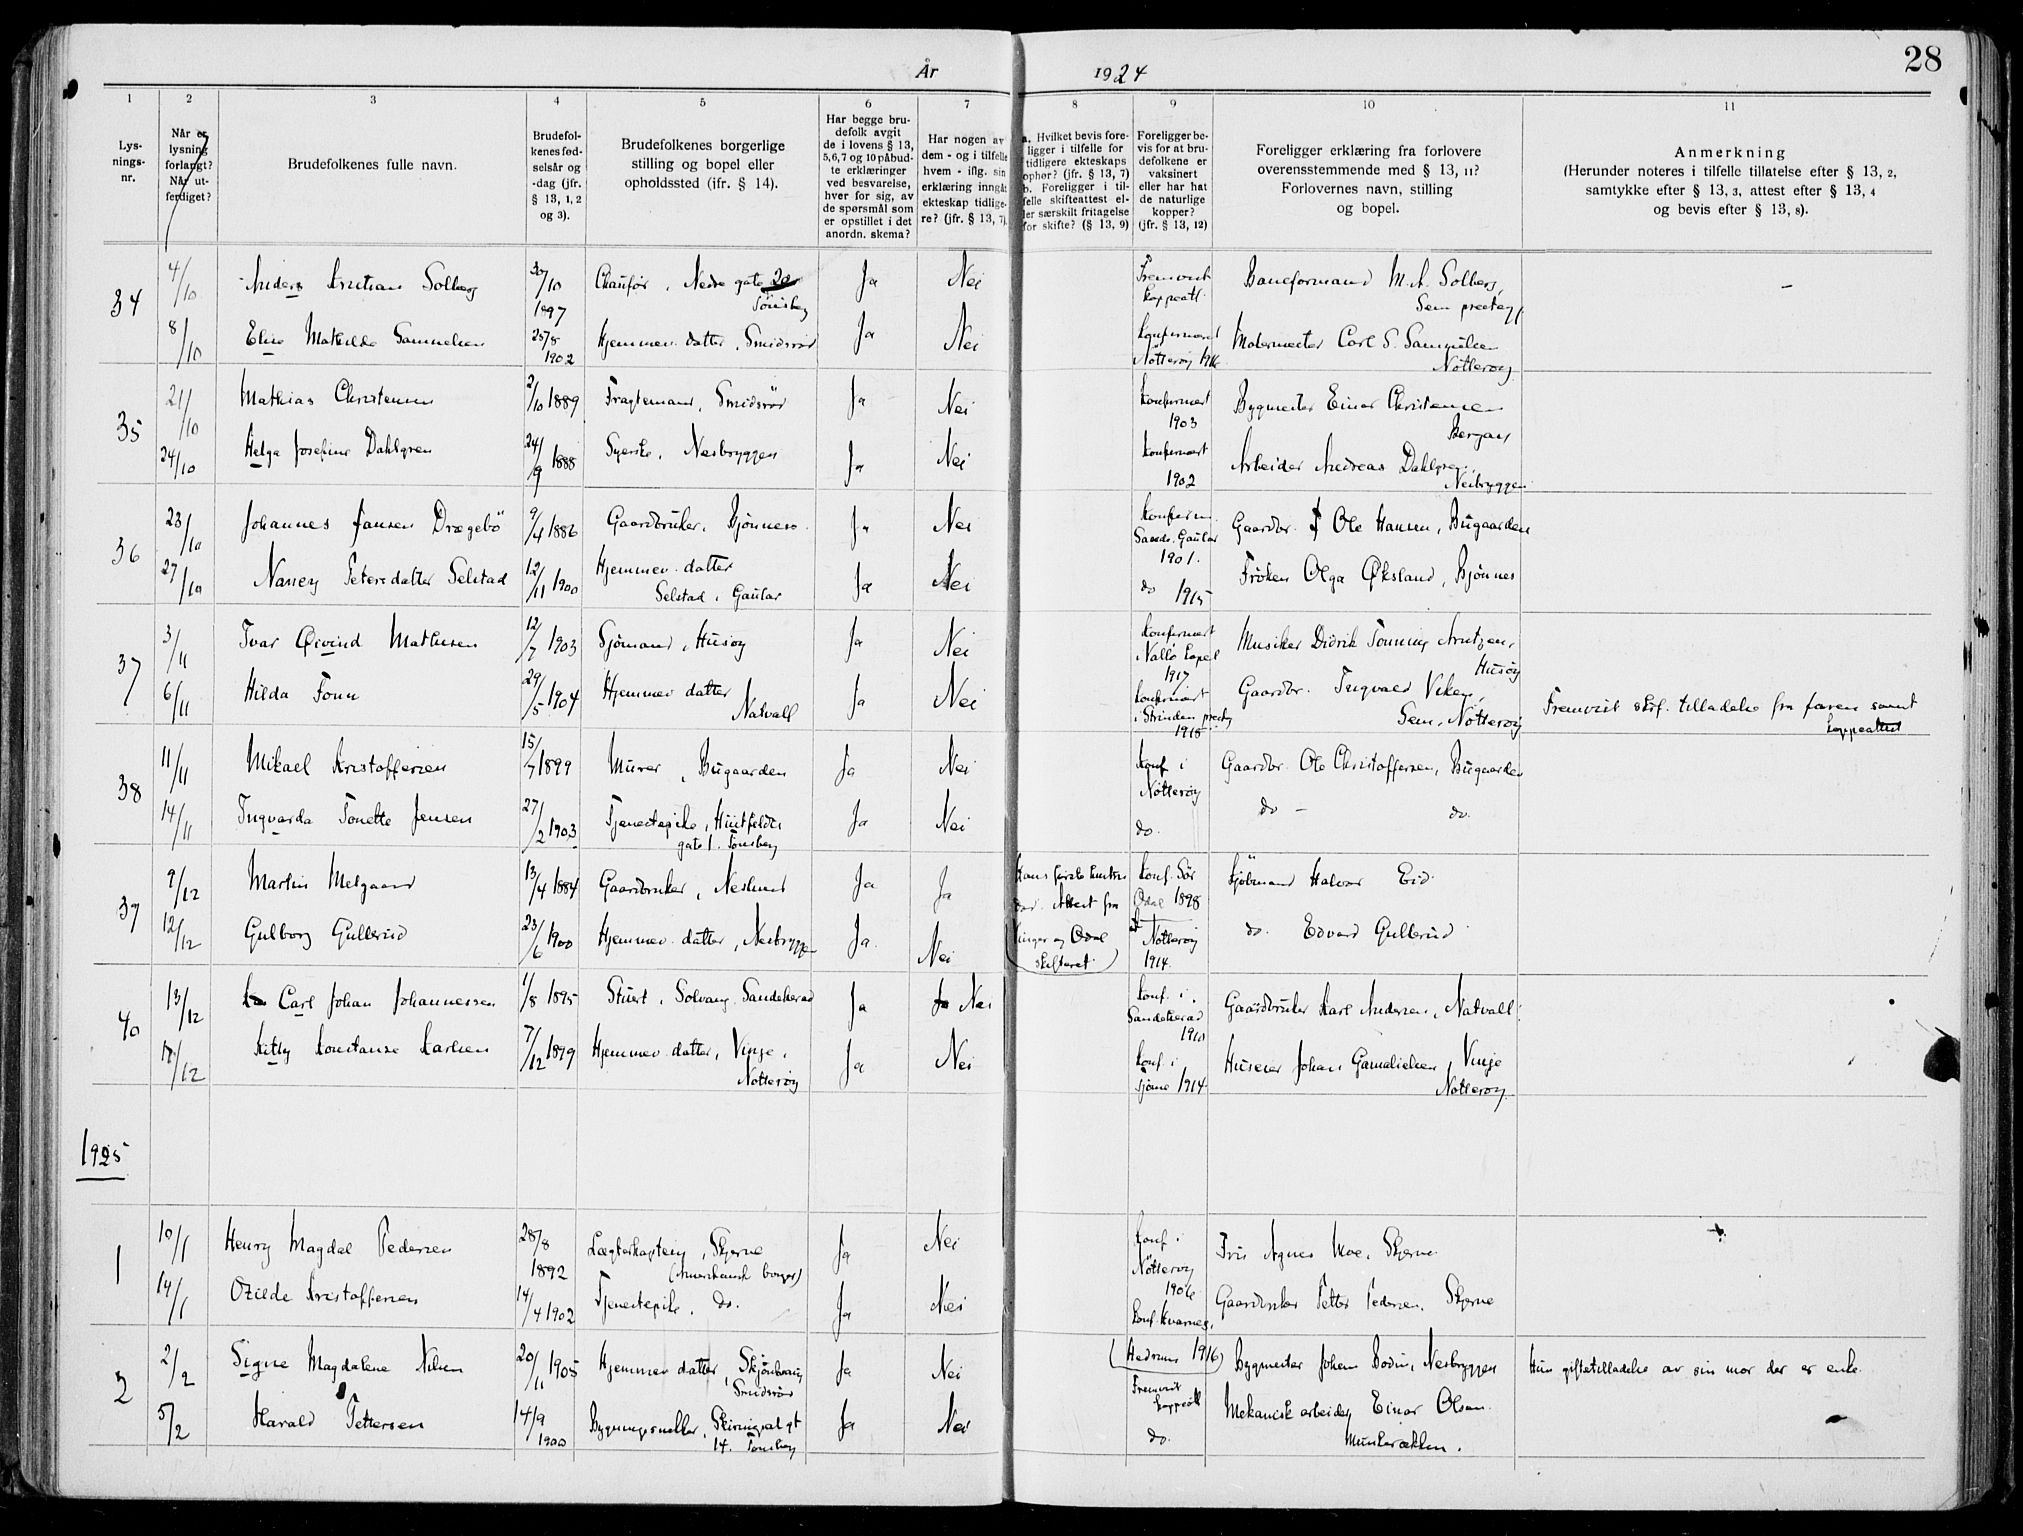 År 1924
28
1 2 3 4 5 6 7 8 9 10 11
Lys-
nings-
nr.
Når er
lysning
forlangt?
Når ut-
ferdiget?
Brudefolkenes fulle navn.
Brudefol-
kenes fød-
selsår og
-dag (jfr.
§ 13, 1, 2
og 3).
Brudefolkenes borgerlige
stilling og bopel eller
opholdssted (ifr. § 14).
Har begge bru-
defolk avgit
de i lovens § 13,
5,6,7 og 10 påbud-
te erklæringer
ved besvarelse,
hver for sig, av
de spørsmål som
er opstillet i det
anordn. skema?
Har nogen av
dem - og i tilfelle
hvem - iflg. sin
erklæring inngått
ekteskap tidlige-
re? (jfr. § 13, 7).
a. Hvilket bevis fore-
ligger i tilfelle for
tidligere ekteskaps
ophør? (jfr. § 13, 7)
b. Foreligger i til-
felle skifteattest el-
ler særskilt fritagelse
for skifte? (§ 13, 9)
Foreligger be-
vis for at bru-
defolkene er
vaksinert
eller har hat
de naturlige
kopper?
(jfr. § 13, 12)
Foreligger erklæring fra forlovere
overensstemmende med § 13, 11?
Forlovernes navn, stilling
og bopel.
Anmerkning
(Herunder noteres i tilfelle tillatelse efter § 13, 2,
samtykke efter § 13, 3, attest efter § 13, 4
og bevis efter § 13, 8).
34 4/10 Anders Kristian Solberg 30/10 1897 Chaufør, Nedre gate 20 Tønsberg Ja Nei Fremvist koppeatt. Baneformand M. A. Solberg, Sem prestegj. -
8/10 Elise Mathilde Samuelsen 25/8 1902 Hjemmev. datter, Smidsrød Ja Nei Konfirmert Nøtterøy 1916 Malermester Carl S. Samuelsen Nøtterøy
35 21/10 Mathias Christensen 2/10 1889 Fragtemand, Smidsrød Ja Nei Konfirmert 1903 Bygmester Einar Christensen Bergan
24/10 Helga Josefine Dahlgren 24/9 1888 Syerske, Nesbryggen Ja Nei Konfirmert 1902 Arbeider Andreas Dahlgren, Nesbryggen
36 23/10 Johannes Jansen Drægebö 9/4 1886 Gaardbruker, Bjønnes Ja Nei Konfirm. Gaular 1901. Gaardbr. Ole Hansen, Bugaarden
27/10 Nancy Petersdatter Selstad 12/11 1900 Hjemmev. datter Selstad, Gaular Ja Nei do 1915 Frøken Olga Øksland, Bjønnes
37 3/11 Ivar Øivind Mathisen 12/7 1903 Sjømand, Husøy Ja Nei Konfirmert Nallo kapel 1917 Musiker Didrik Tønning Arntzen, Husøy
6/11 Hilda Tonn 29/5 1904 Hjemmev datter Natvall Ja Nei Konfirmert i Strinden prestgj 1918 Gaardbr. Ingvald Viken, Sem, Nøtterøy Fremvist skrf. tilladelse fra faren samt koppeattest
38 11/11 Mikael Kristoffersen 15/7 1899 Murer, Bugaarden Ja Nei Konf i Nøtterøy Gaardbr. Ole Christoffersen, Bugaarden
14/11 Ingvarda Tonette Jensen 27/2 1903 Tjenestepike, Huitfeldts gate 1. Tønsberg Ja Nei do. do - do.
39 9/12 Martin Melgaard 13/4 1884 Gaardbruker, Neslund Ja Ja Hans første hustru død. Attest fra Vinger og Odal skifteret Konf. Sør Odal 1898 Sjømand Halvor Eid
12/12 Gulborg Gullerud 23/6 1900 Hjemmev. datter, Nesbryggen Ja. Nei Nøtterøy 1914. do. Edvard Gullerud
40 13/12 Carl Johan Johannessen 1/8 1895 Stuert, Solvang, Sandeherad Ja Nei Konf. i Sandeherad 1910 Gaardbruker Karl Andersen, Natvall.
17/12 Kitty Konstanse Karlsen 7/12 1899 Hjemmev. datter, Vinje, Nøtterøy Ja Nei Konf. i Tjøme 1914 Huseier Johan Gamalielsen, Vinje Nøtterøy.
1925
1 10/1 Henry Magdal Pedersen 28/8 1892 Lægterkaptein, Skjerve (Amerikansk borger) Ja Nei Konf i Nøtterøy 1906 Fru Agnes Moe, Skjerve
14/1 Ozilde Kristoffersen 14/4 1902 Tjenestepike, do. Ja Nei Konf. Kvarnes, Gaardbruker Petter Pedersen, Skjerve
2 2/2 Signe Magdalene Nilsen 20/11 1905 Hjemmev datter, Smidsrød Ja Nei (Hedrum 1916) Bygmester Johan Bodin, Nesbryggen Hun giftetilladelse av sin mor der er enke.
5/2 Harald Pettersen 14/9 1900 Bygningssnekker, Skiringssal gt 14. Tønsberg Ja Nei Fremvist koppeatt do. Mekanisk arbeider Einar Olsen. Munkerækken.